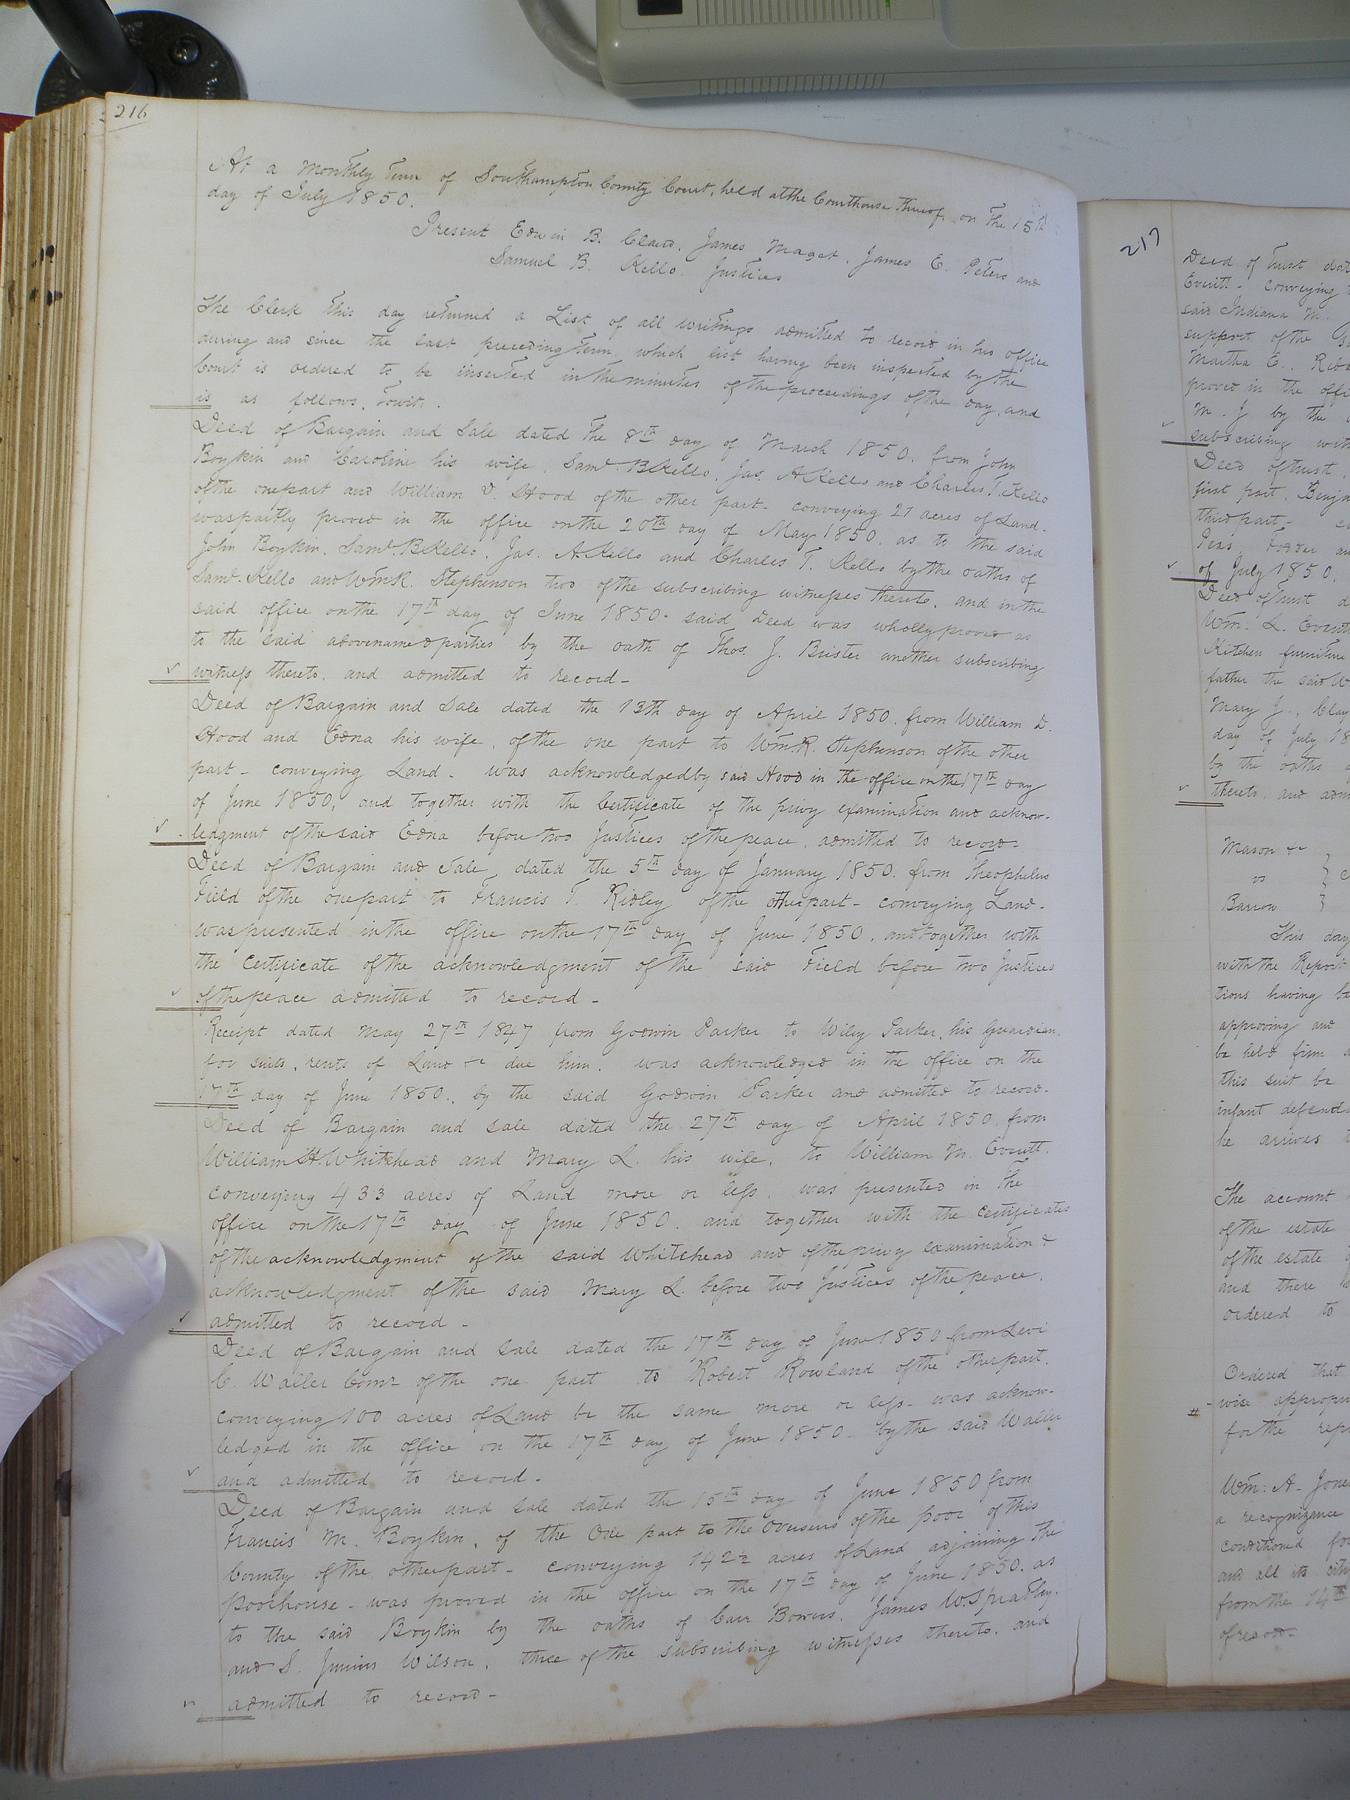 216
At a Monthly Term of Southampton County Court, held at the Courthouse thereof, on the 15th
day of July 1850.
Present Edwin B. Claud, James Maget, James E. Peters and
Samuel B. Kello Justices
The Clerk this day returned a List of all writings admitted to record in his office
during and since the last preceding Term, which list having been inspected by the
Court is ordered to be inserted in the minutes of the proceedings of the day, and
is as follows, Towit.
Deed of Bargain and Sale dated the 8th day of March 1850, from John
Boykin and Caroline his wife, Saml. B Kello, Jas. A Kello and Charles T. Kello
of the one part and William D. Hood of the other part - conveying 21 acres of Land -
was partly proved in the office on the 20th day of May 1850, as to the said
John Boykin, Saml. B Kello, Jas. A. Kello and Charles T. Kello by the oaths of
Saml. Kello and Wm R. Stephenson two of the subscribing witnesses thereto, and in the
said office on the 17th day of June 1850 - said Deed was wholly proved as
to the said abovenamed parties by the oath of Thos. J. Brister another subscribing
witness thereto, and admitted to record -
Deed of Bargain and Sale dated the 13th day of April 1850, from William D.
Hood and Edna his wife, of the one part to Wm R. Stephenson of the other
part - conveying Land - was acknowledged by said Hood in the office on the 17th day
of June 1850, and together with the Certificate of the privy examination and acknow-
ledgment of the said Edna before two Justices of the peace, admitted to record -
Deed of Bargain and Sale, dated the 5th day of January 1850, from Theophelus
Field of the one part to Francis T. Ridley of the other part - conveying Land -
was presented in the office on the 17th day of June 1850, and together with
the certificate of the acknowledgment of the said Field before two Justices
of the peace admitted to record -
Receipt dated May 27th 1847 from Godwin Parker to Wiley Parker, his Guardian
for suits, rents of Land &c due him, was acknowledged in the office on the
17th day of June 1850, by the said Godwin Parker and admitted to record -
Deed of Bargain and sale dated the 27th day of April 1850 from
William H. Whitehead and Mary L. his wife, to William M. Everett,
conveying 433 acres of Land more or less, was presented in the
office on the 17th day of June 1850, and together with the certificates
of the acknowledgment of the said Whitehead and of the privy examination &
acknowledgment of the said Mary L. before two Justices of the peace,
admitted to record -
Deed of Bargain and sale dated the 17th day of June 1850 from Levi
C. Waller Comr of the one part to Robert Rowland of the other part,
conveying 100 acres of Land be the same more or less - was acknow-
ledged in the office on the 17th day of June 1850 - by the said Waller
and admitted to record -
Deed of Bargain and sale dated the 15th day of June 1850 from
Francis M. Boykin, of the one part to the Overseers of the poor of this
County of the other part - conveying 142½ acres of Land adjoining the
Poorhouse - was proved in the office on the 17th day of June 1850, as
to the said Boykin by the oaths of Carr Bowers, James W. Spratley,
and S. Junius Wilson, three of the subscribing witnesses thereto, and
admitted to record -
217
Deed of Trust dat
Everitt - conveying
said Indiana M.
support of the
Martha E.
proved in the offi
M. J by the
subscribing witn
Deed of trust,
first part, Benja
third part -
Peas, Fodder an
of July 1850,
Deed of trust d
Wm. L. Everitt
Kitchen furniture
father the said W
Mary J., Clay
day of July 18
by the oaths
thereto, and adm
Mason &c
vs
Barrow
This day
with the Report
tions having be
approving and
be held firm a
this suit be
infant defenda
he arrives t
The account
of the estate
of the estate
and there b
ordered to
Ordered that
wise appropri
for the repa
Wm. A. Jones
a recognizance
conditioned for
and all its citi
from the 14th
of record -